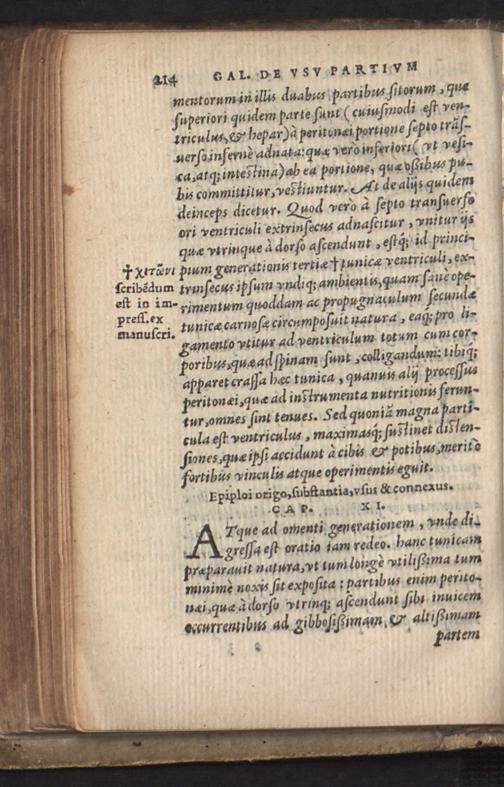 214 GAL. DE VSV PARTIVM
mentorum in illis duabus partibus sitorum, quæ
superiori quidem parte sunt (cuiusmodi est ven-
triculus, & hepar) à peritonæi portione septo trãs-
uerso infernè adnata: quæ verò inferiori (vt vesi-
ca, atq; intestina) ab ea portione, quæ ossibus pu-
bis committitur, vestiuntur. At de alijs quidem
deinceps dicetur. Quod verò à septo transuerso
ori ventriculi extrinsecus adnascitur, vnitur ijs
quæ vtrinque à dorso ascendunt, estq; id princi-
pium generationis tertiæ † tunicæ ventriculi, ex-
trinsecus ipsum vndiq; ambientis, quam sanè ope-
rimentum quoddam ac propugnaculum secundæ
tunicæ carnosæ circumposuit natura, eaq; pro li-
gamento vtitur ad ventriculum totum cum cor-
poribus, quæ ad spinam sunt, colligandum: tibiq;
apparet crassa hæc tunica, quanuis alij processus
peritonæi, quæ ad instrumenta nutritionis ferun-
tur, omnes sint tenues. Sed quoniã magna parti-
cula est ventriculus, maximasq; sustinet disten-
siones, quæ ipsi accidunt à cibis & potibus, merito
fortibus vinculis atque operimentis eguit.
† χιτῶνι
scribēdum
est in im-
press. ex
manuscri.
Epiploi origo, substantia, vsus & connexus.
CAP. XI.
ATque ad omenti generationem, vnde di-
gressa est oratio iam redeo. hanc tunicam
præparauit natura, vt tum longè vtilißima tum
minimè noxis sit exposita: partibus enim perito-
næi, quæ à dorso vtrinq; ascendunt sibi inuicem
occurrentibus ad gibbosißimam, & altißimam
partem